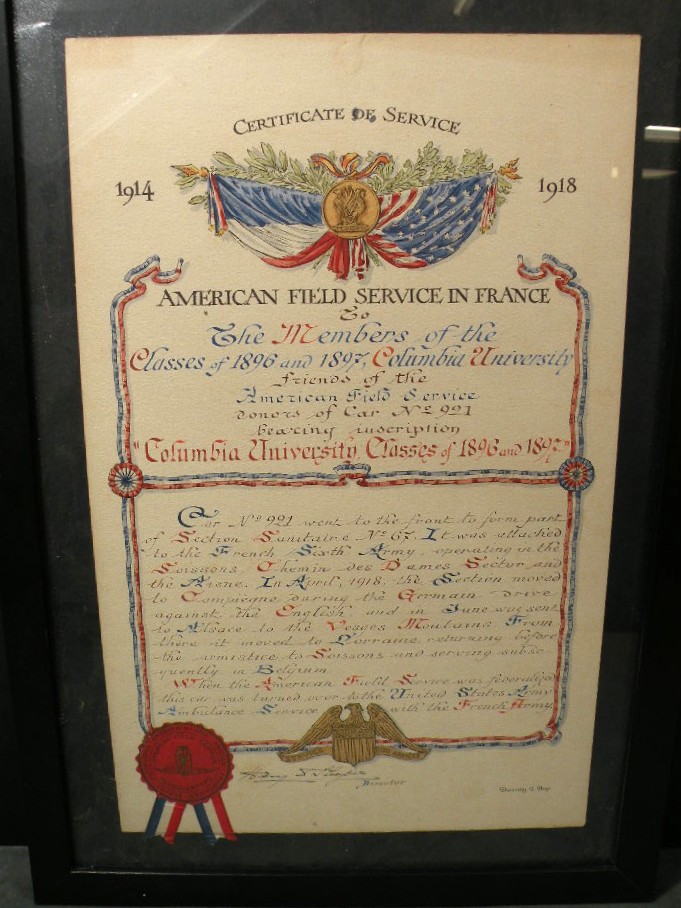 CERTIFICATE OF SERVICE
1914 1918
AMERICAN FIELD SERVICE IN FRANCE
To
The Members of the
Classes of 1896 and 1897, Columbia University
friends of the
American Field Service
donors of Car No 921
bearing inscription
"Columbia University, Classes of 1896 and 1897."
Car No 921 went to the front to form part
of Section Sanitaire No 67. It was attached
to the French Sixth Army, operating in the
Soissons, Chemin des Dames Sector and
the Aisne. In April, 1918, the Section moved
to Compiegne during the German drive
against the English and in June was sent
to Alsace to the Vosges Moutains. From
there it moved to Lorraine returning before
the armistice to Soissons and serving subse
quently in Belgium.
When the American Field Service was federalized
this car was turned over to the United States Army
Ambulance Service with the French Army.
Director